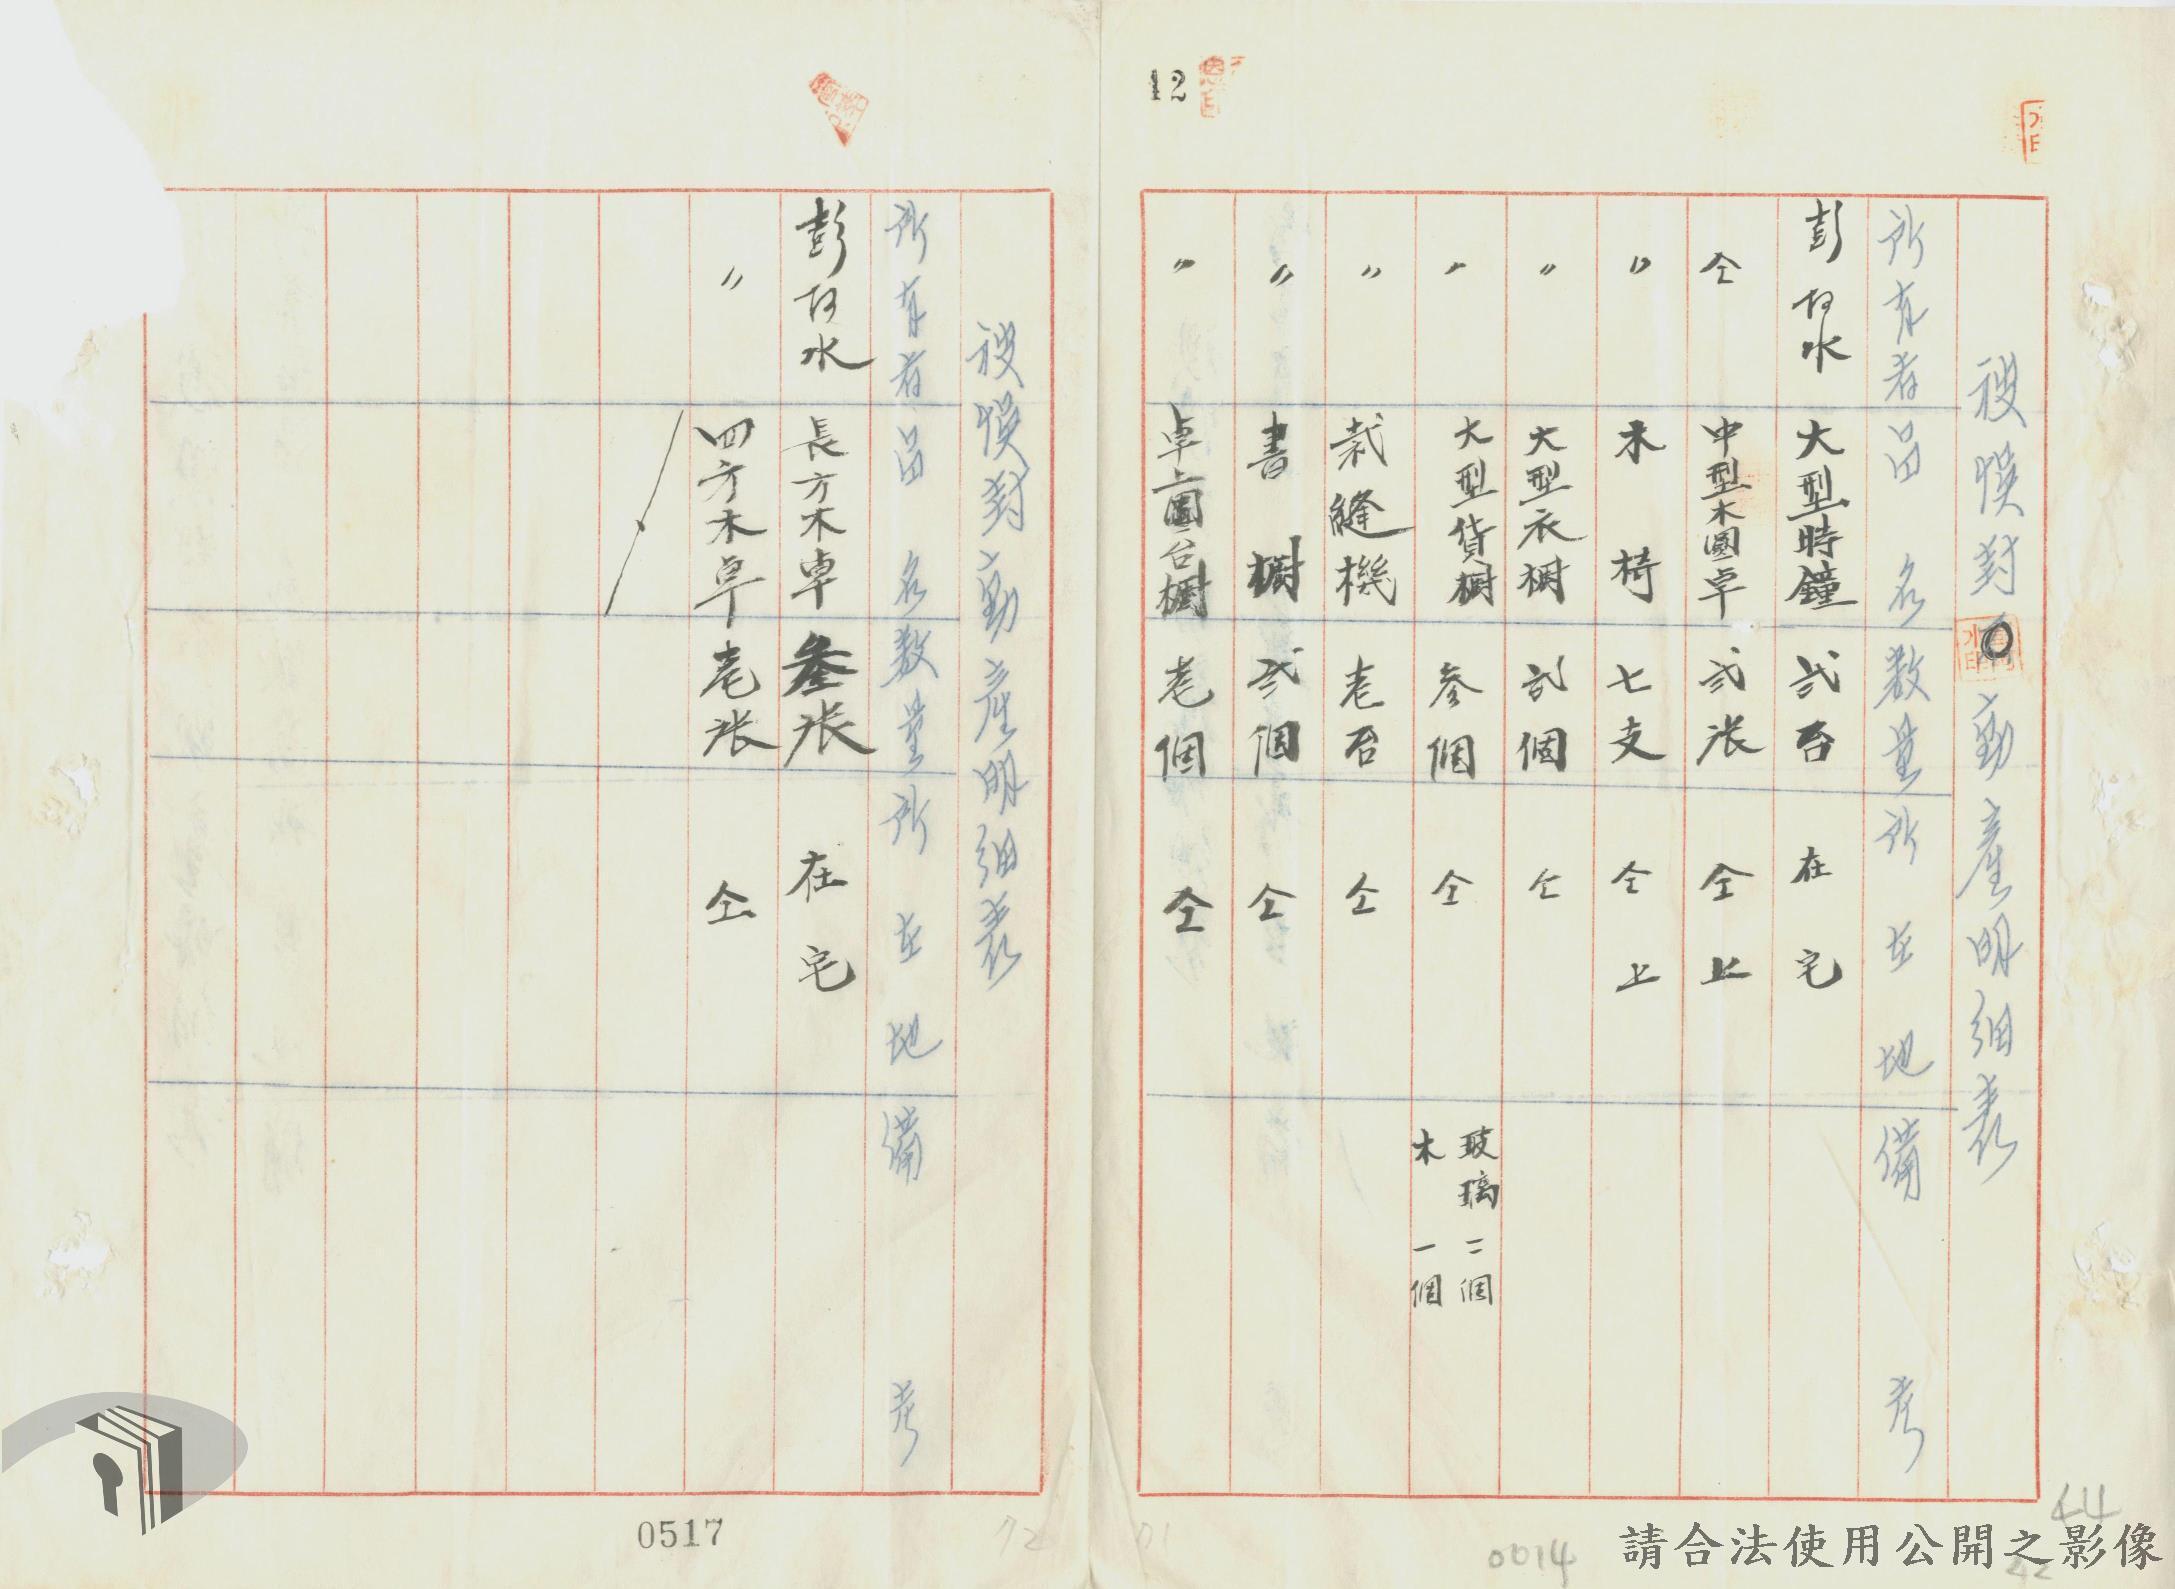 12
被悞封動產明細表
所有者 品名 數量 所在地 備考
彭阿水 大型時鐘 弍台 在宅
仝 中型木圓卓 弍张 仝上
〃 木椅 七支 仝上
〃 大型衣橱 弍個 仝
〃 大型貨橱 参個 仝 玻璃二個
木一個
〃 裁縫機 壱台 仝
〃 書橱 弍個 仝
〃 卓上圓台橱 壱個 仝
被悞封動產明細表
所有者 品名 數量 所在地 備考
彭阿水 長方木卓 叄张 在宅
〃 四方木卓 壱张 仝
0517
72
71
0014
44
請合法使用公開之影像